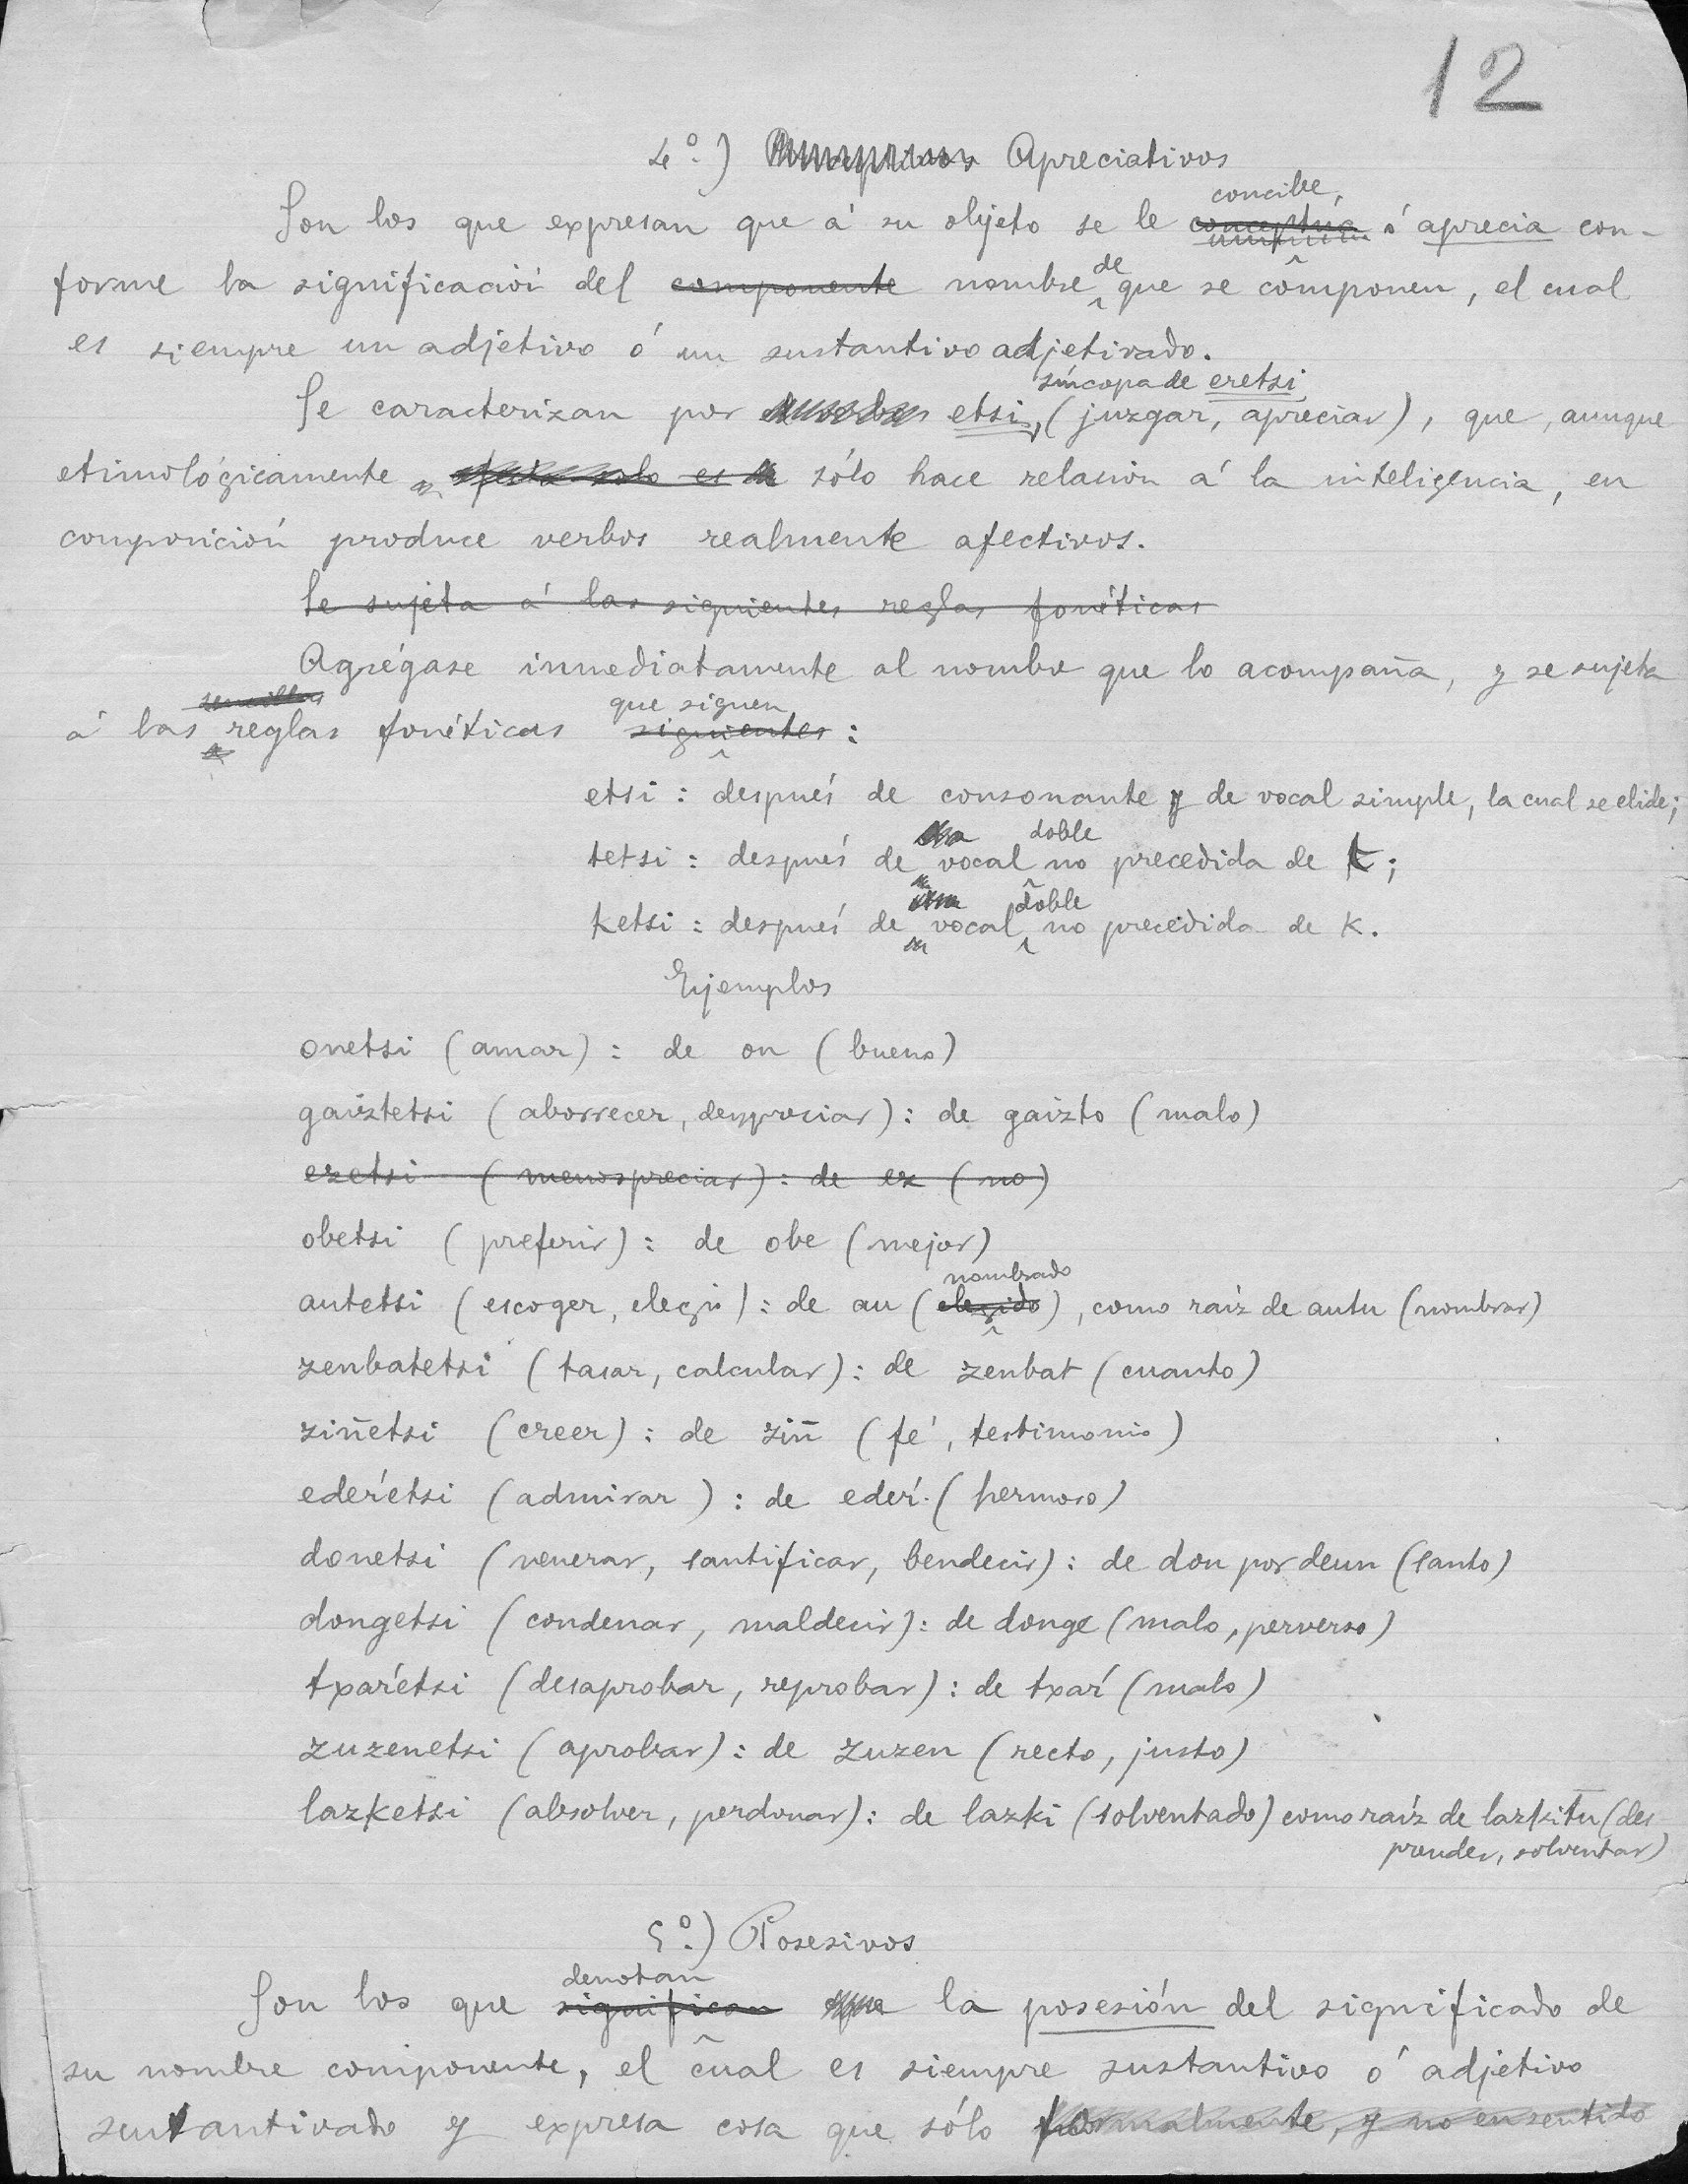 12
4º.) Apreciativos
concibe,
Son los que expresan que á su objeto se le conceptúa ó aprecia con-
forme la significación del componente nombre de que se componen, el cual
es siempre un adjetivo ó un sustantivo adjetivado.
síncopa de eretsi
Se caracterizan por etsi, (juzgar, apreciar), que, aunque
etimológicamente sólo hace relación á la inteligencia, en
composición produce verbos realmente afectivos.
Se sujeta á las siguientes reglas fonéticas
Agrégase inmediatamente al nombre que lo acompaña, y se sujeta
sencillas que siguen
á las reglas fonéticas siguientes:
etsi: después de consonante y de vocal simple, la cual se elide;
doble
tetsi: después de vocal no precedida de t;
doble
ketsi: después de vocal no precedida de k.
Ejemplos
onetsi (amar): de on (bueno)
gaiztetsi (aborrecer, despreciar): de gaizto (malo)
ezetsi (menospreciar): de ez (no)
obetsi (preferir): de obe (mejor)
nombrado
autetsi (escoger, elegir): de au (elegido), como raíz de autu (nombrar)
zenbatetsi (tasar, calcular): de zenbat (cuanto)
ziñetsi (creer): de ziñ (fé, testimonio)
edeŕetsi (admirar): de edeŕ. (hermoso)
donetsi (venerar, santificar, bendecir): de don por deun (santo)
dongetsi (condenar, maldecir): de donge (malo, perverso)
txaŕetsi (desaprobar, reprobar): de txaŕ (malo)
zuzenetsi (aprobar): de zuzen (recto, justo)
lazketsi (absolver, perdonar): de lazki (solventado) como raíz de lazkitu (des
prender, solventar)
5º.) Posesivos
denotan
Son los que significan la posesión del significado de
su nombre componente, el cual es siempre sustantivo ó adjetivo
sustantivado y expresa cosa que sólo formalmente, y no en sentido